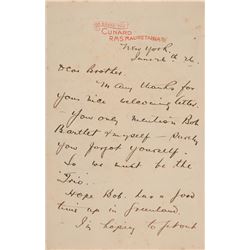 CUNARD
R.M.S. MAURETANIA
New York
June 26th 26.
Dear Brother.
Many thanks for
your nice welcoming letter.
- You only mention Bob
Bartlet & myself - Surely
you forgot yourself.
So we must be the
Trio.
Hope Bob. has a good
time up in Greenland
I'm hoping to get out